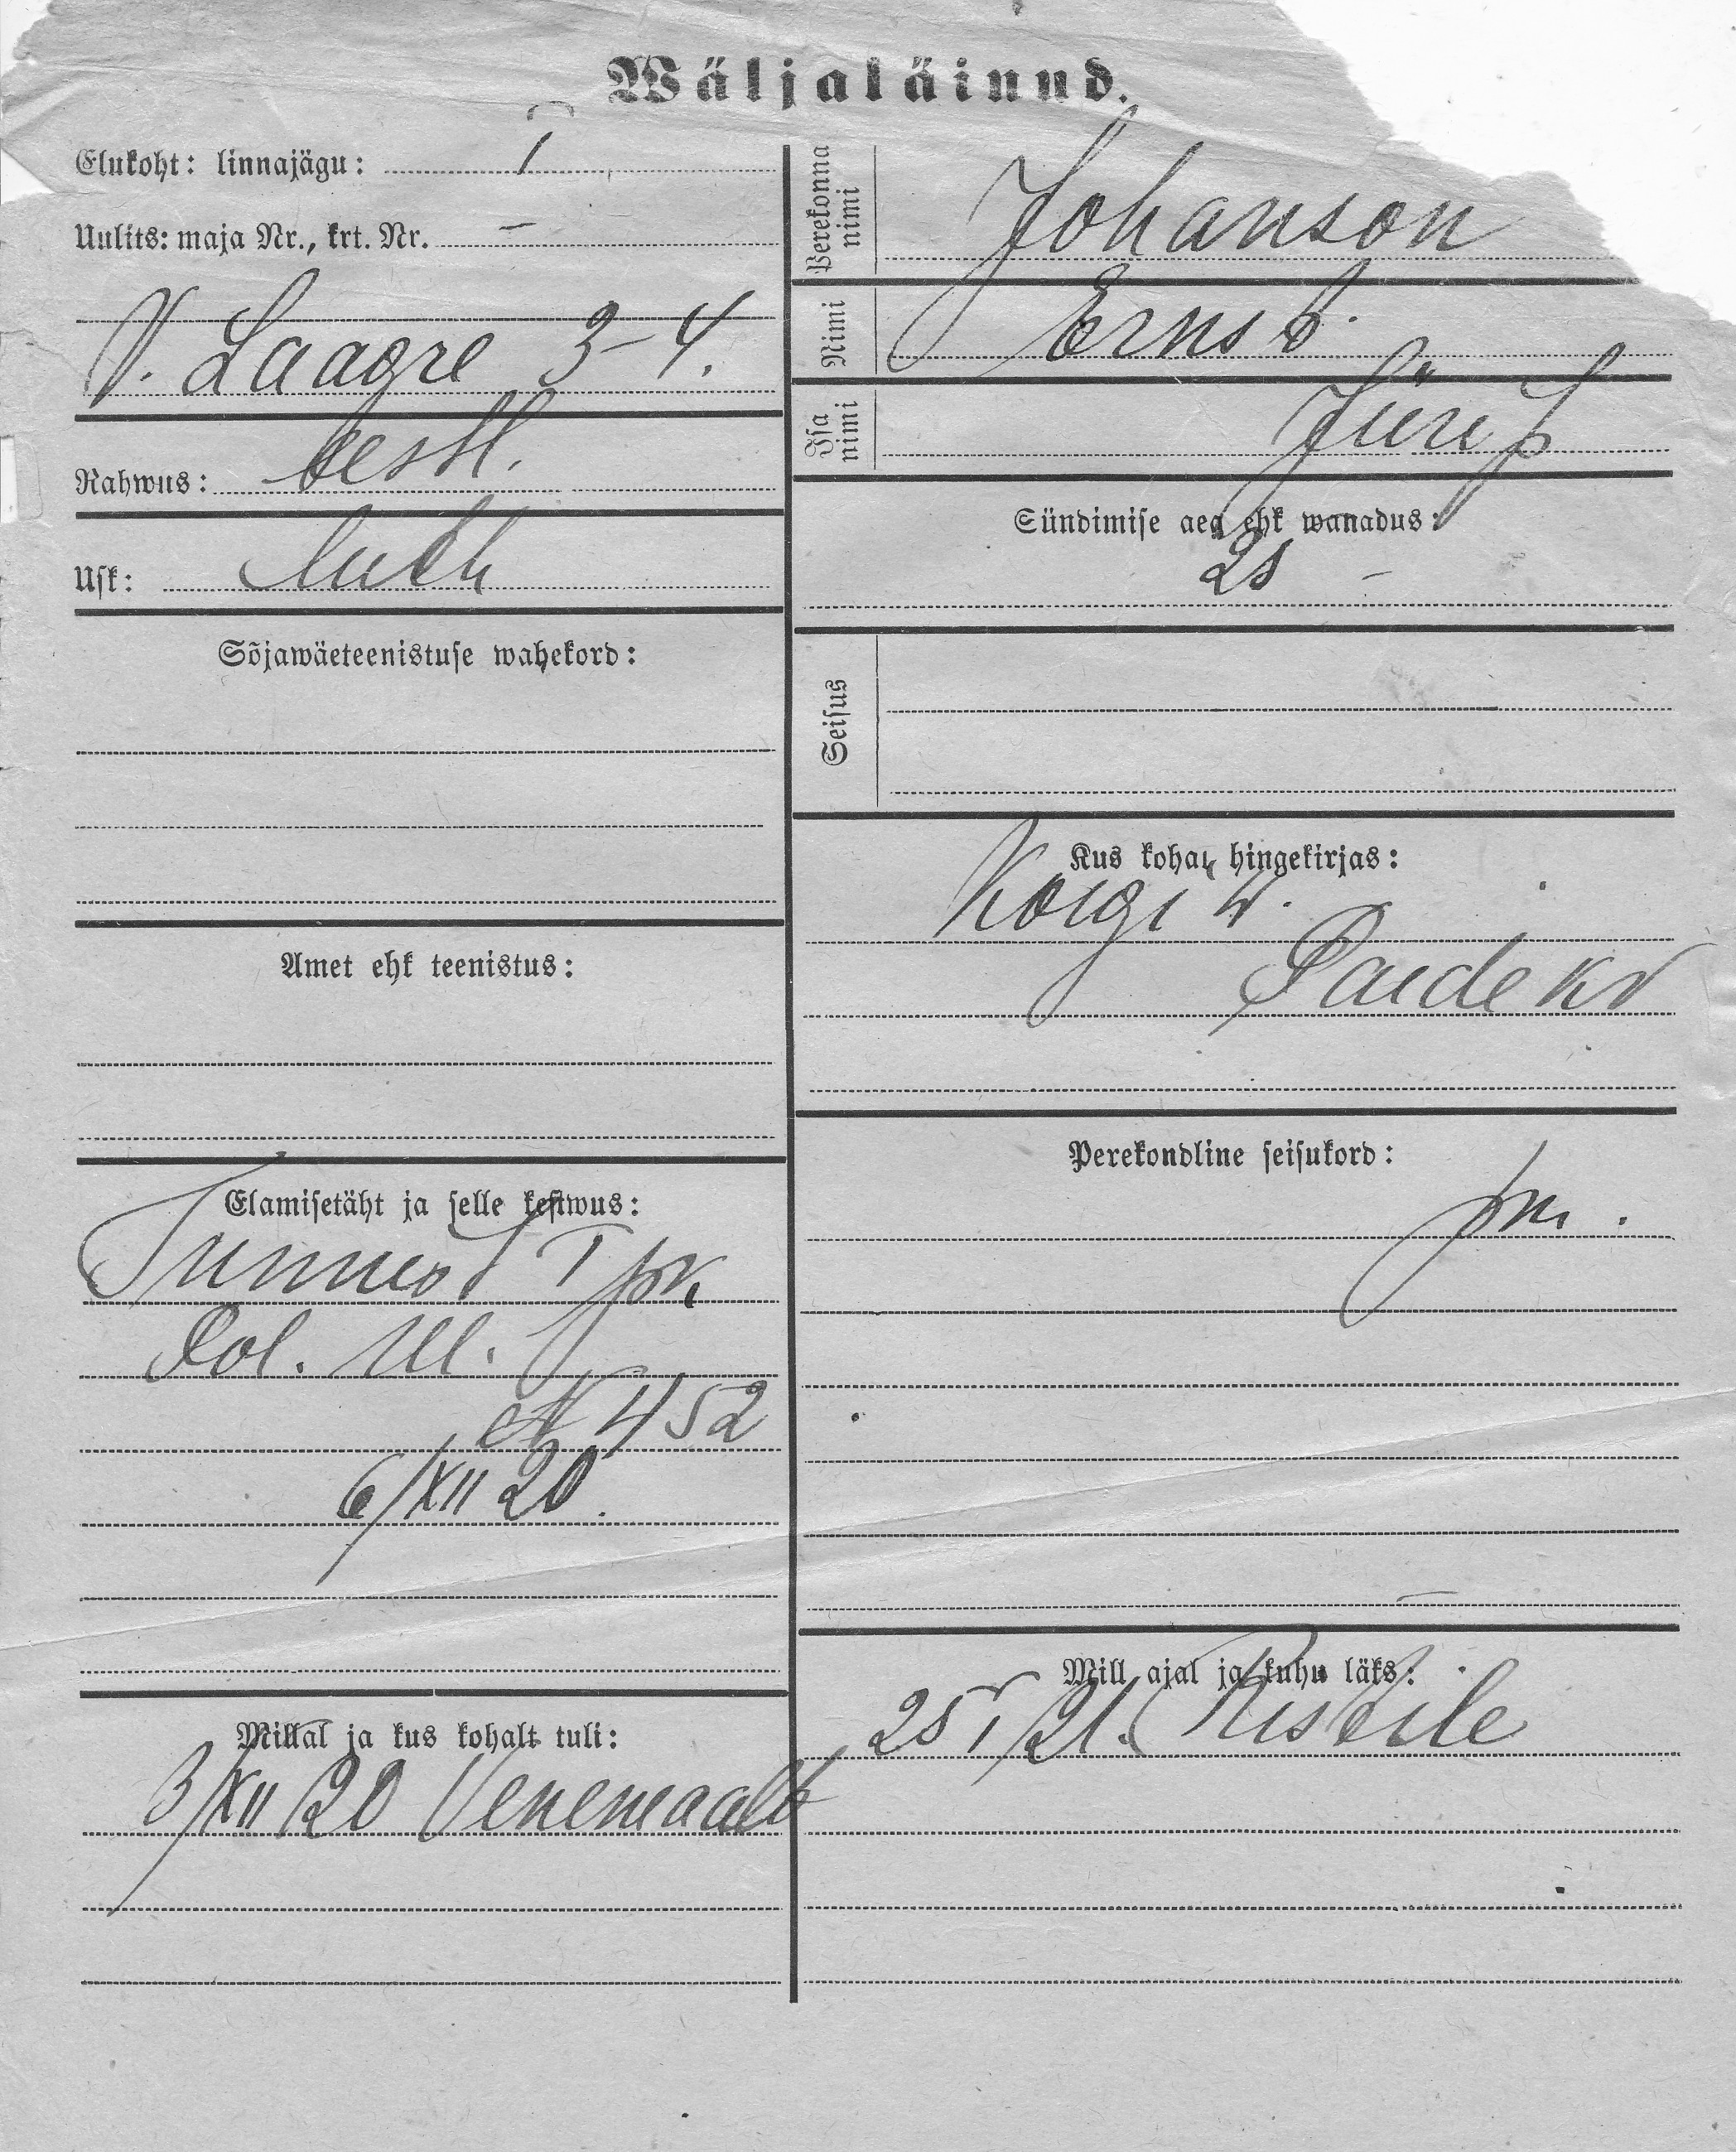 Wäljaläinud.
Elukoht: linnajägu: I
Uulits: maja Nr., krt. Nr. –
V. Laagre 3–4.
Rahwus: eestl.
Usk: luth
Sõjawäeteenistuse wahekord:
Amet ehk teenistus:
Elamisetäht ja selle kestwus:
Tunnist I jsk.
Pol. Ül.
N 452
6/XII 20.
Millal ja kus kohalt tuli:
3/XII 20 Venemaalt
Perekonna nimi Johanson
Nimi Ernst
Isa nimi Jüri p
Sündimise aeg ehk wanadus:
Seisus
Kus kohal hingekirjas:
Koigi w.
Paide kr
Perekondline seisukord:
Mill ajal ja kuhu läks:
25 I/21. Ristile